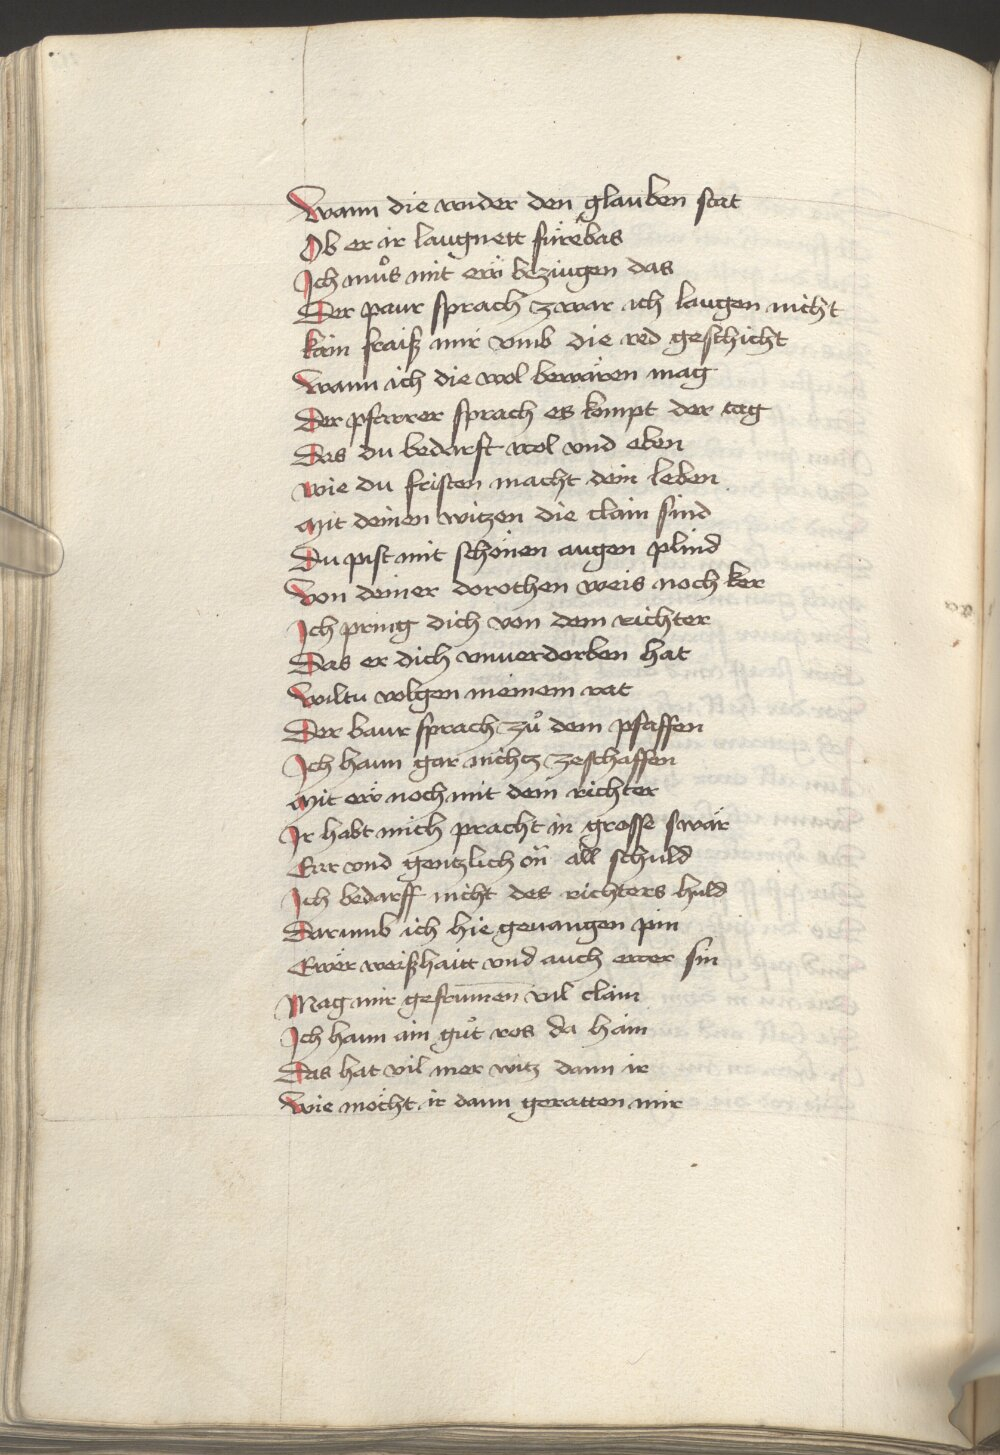 Wann die vnder den glauben stat
Ob er ir laugnett fürebas
Ich muͦs mit ew bezüugen das
Der paur sprach zwar ich laugen nicht
kain fraiß mir vmb die red geschicht
Wann ich die wol bewären mag
Der pfarrer sprach es kompt der tag
Das du bedarft wol vnd eben
wie du fristen macht dein leben
Mit deinen witzen die clain sind
Du pist mit schönen augen plind
Von deiner dorothen weis noch ker
Ich pring dich von dem richter
Das er dich vnuerdorben hat
Wiltu volgen meinem rat
Der baur sprach zuͦ dem pfaffen
Ich hann gar nichtz zeschaffen
Mit ew noch mit dem richter
Ir habt mich pracht in grosse swär
Err vnd gentzlich on all schuld
Ich bedarff nicht des richters huld
Darumb ich hie geuangen pin
Ewer weißhaitt vnd auch ewer sin
Mag mir gefrumen vil clain
Ich hann ain guͦt ros da haim
Das hat vil mer witz dann ir
Wie möcht ir dann geratten mir